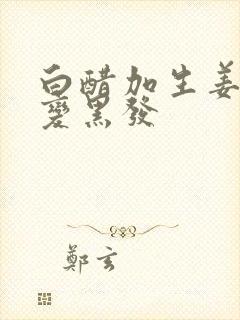 白醋加生姜
变黑發
鄭玄